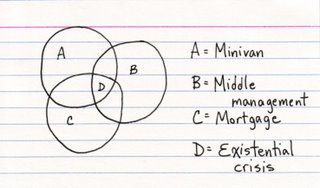 A
B
D
C
A = Minivan
B = Middle
management
C = Mortgage
D = Existential
crisis